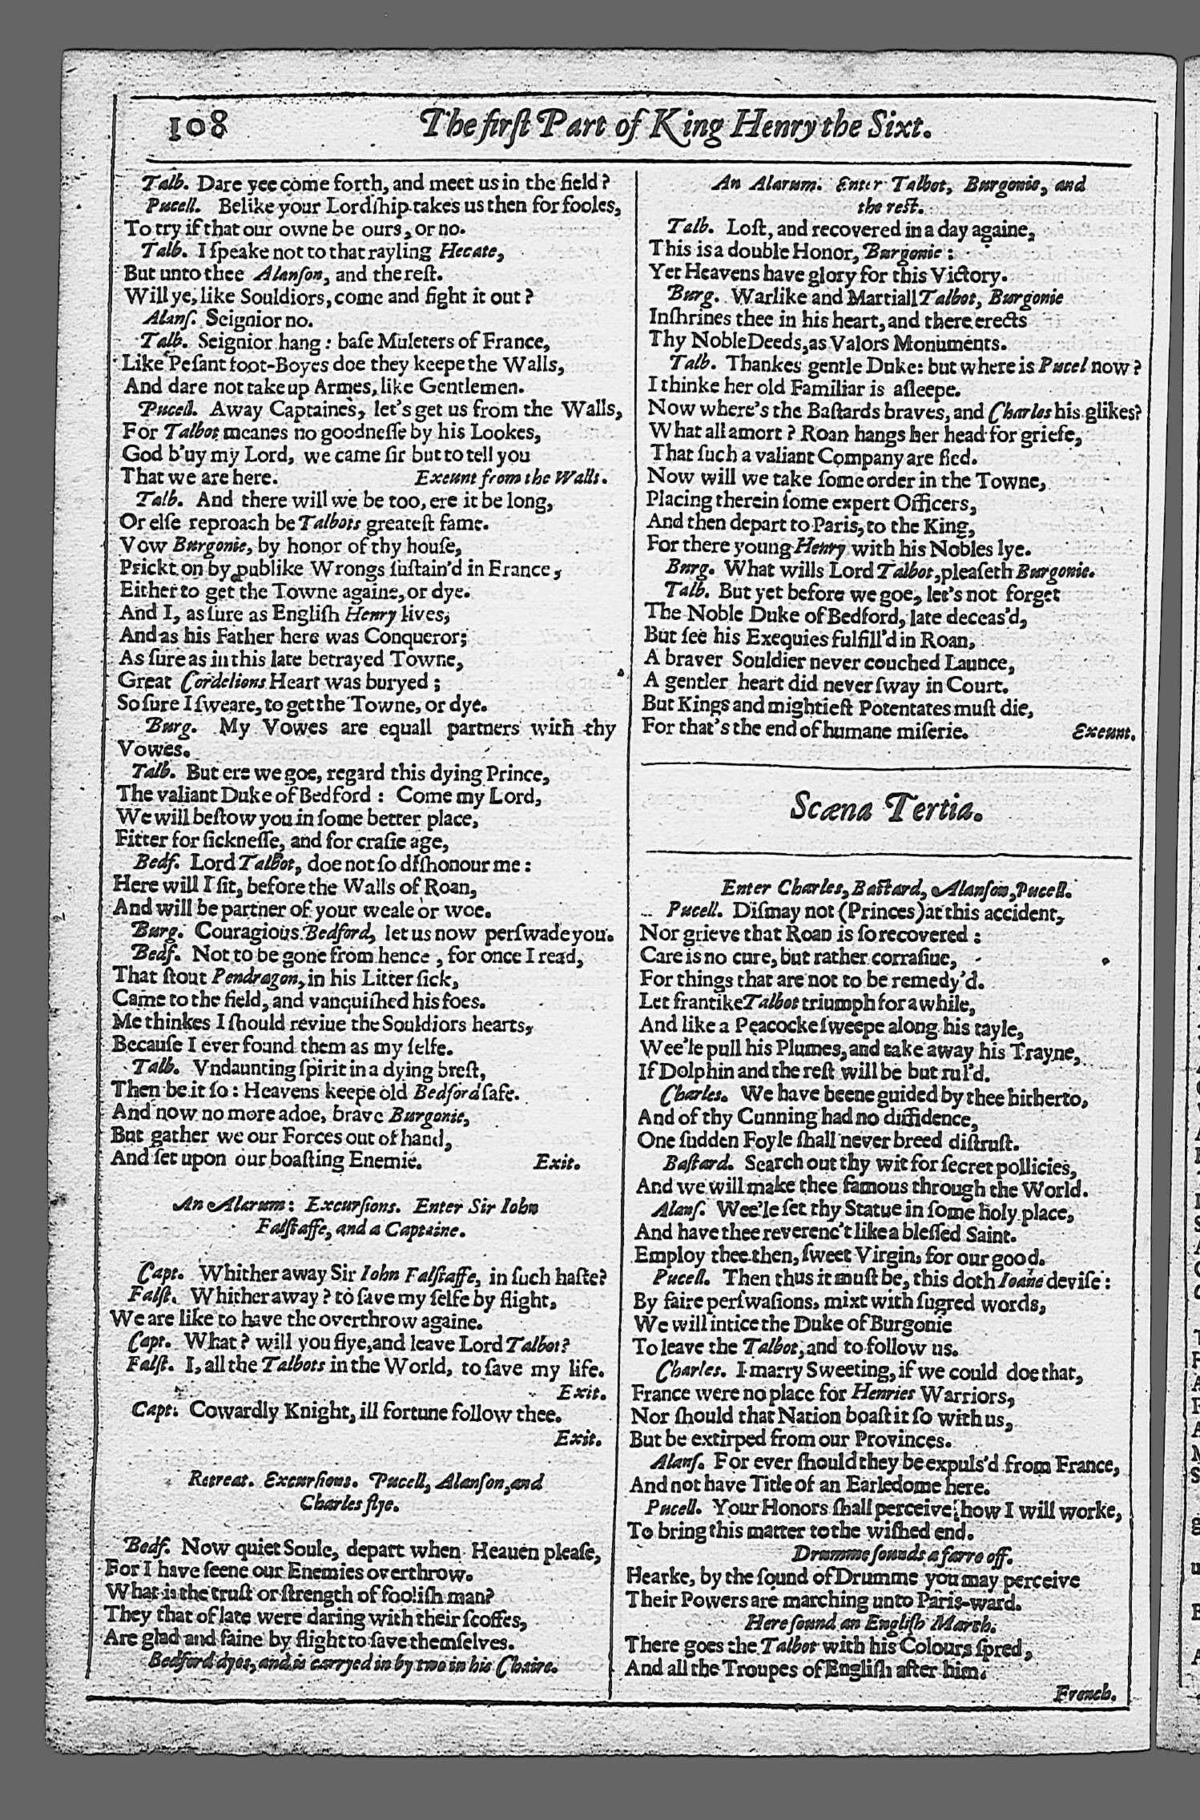 108
The first Part of King Henry the Sixt.
Talb. Dare yee come forth, and meet us in the field?
Pucell. Belike your Lordship takes us then for fooles,
To try if that our owne be ours, or no.
Talb. I speake not to that rayling Hecate,
But unto thee Alanson, and the rest.
Will ye, like Souldiors, come and fight it out?
Alans. Seignior no.
Talb. Seignior hang: base Muleters of France,
Like Pesant foot-Boyes doe they keepe the Walls,
And dare not take up Armes, like Gentlemen.
Pucell. Away Captaines, let's get us from the Walls,
For Talbot meanes no goodnesse by his Lookes,
God b'uy my Lord, we came sir but to tell you
That we are here. Exeunt from the Walls.
Talb. And there will we be too, ere it be long,
Or else reproach be Talbots greatest fame.
Vow Burgonie, by honor of thy house,
Prickt on by publike Wrongs sustain'd in France,
Either to get the Towne againe, or dye.
And I, as sure as English Henry lives,
And as his Father here was Conqueror;
As sure as in this late betrayed Towne,
Great Cordelions Heart was buryed;
So sure I sweare, to get the Towne, or dye.
Burg. My Vowes are equall partners with thy
Vowes.
Talb. But ere we goe, regard this dying Prince,
The valiant Duke of Bedford: Come my Lord,
We will bestow you in some better place,
Fitter for sicknesse, and for crasie age,
Bedf. Lord Talbot, doe not so dishonour me:
Here will I sit, before the Walls of Roan,
And will be partner of your weale or woe.
Burg. Couragious Bedford, let us now perswade you.
Bedf. Not to be gone from hence, for once I read,
That stout Pendragon, in his Litter sick,
Came to the field, and vanquished his foes.
Me thinkes I should reviue the Souldiors hearts,
Because I ever found them as my selfe.
Talb. Vndaunting spirit in a dying brest,
Then be it so: Heavens keepe old Bedford safe.
And now no more adoe, brave Burgonie,
But gather we our Forces out of hand,
And set upon our boasting Enemie. Exit.
An Alarum: Excursions. Enter Sir Iohn
Falstaffe, and a Captaine.
Capt. Whither away Sir Iohn Falstaffe, in such haste?
Falst. Whither away? to save my selfe by flight,
We are like to have the overthrow againe.
Capt. What? will you flye, and leave Lord Talbot?
Falst. I, all the Talbots in the World, to save my life.
Exit.
Capt. Cowardly Knight, ill fortune follow thee.
Exit.
Retreat. Excursions. Pucell, Alanson, and
Charles flye.
Bedf. Now quiet Soule, depart when Heauen please,
For I have seene our Enemies overthrow.
What is the trust or strength of foolish man?
They that of late were daring with their scoffes,
Are glad and faine by flight to save themselves.
Bedford dyes, and is carryed in by two in his Chaire.
An Alarum. Enter Talbot, Burgonie, and
the rest.
Talb. Lost, and recovered in a day againe,
This is a double Honor, Burgonie:
Yet Heavens have glory for this Victory.
Burg. Warlike and Martiall Talbot, Burgonie
Inshrines thee in his heart, and there erects
Thy Noble Deeds, as Valors Monuments.
Talb. Thankes gentle Duke: but where is Pucel now?
I thinke her old Familiar is asleepe.
Now where's the Bastards braves, and Charles his glikes?
What all amort? Roan hangs her head for griefe,
That such a valiant Company are fled.
Now will we take some order in the Towne,
Placing therein some expert Officers,
And then depart to Paris, to the King,
For there young Henry with his Nobles lye.
Burg. What wills Lord Talbot, pleaseth Burgonie.
Talb. But yet before we goe, let's not forget
The Noble Duke of Bedford, late deceas'd,
But see his Exequies fulfill'd in Roan,
A braver Souldier never couched Launce,
A gentler heart did never sway in Court.
But Kings and mightiest Potentates must die,
For that's the end of humane miserie. Exeunt.
Scæna Tertia.
Enter Charles, Bastard, Alanson, Pucell.
Pucell. Dismay not (Princes) at this accident,
Nor grieve that Roan is so recovered:
Care is no cure, but rather corrasiue,
For things that are not to be remedy'd.
Let frantike Talbot triumph for a while,
And like a Peacocke sweepe along his tayle,
Wee'le pull his Plumes, and take away his Trayne,
If Dolphin and the rest will be but rul'd.
Charles. We have beene guided by thee hitherto,
And of thy Cunning had no diffidence,
One sudden Foyle shall never breed distrust.
Bastard. Search out thy wit for secret pollicies,
And we will make thee famous through the World.
Alans. Wee'le set thy Statue in some holy place,
And have thee reverenc't like a blessed Saint.
Employ thee then, sweet Virgin, for our good.
Pucell. Then thus it must be, this doth Ioane devise:
By faire perswasions, mixt with sugred words,
We will intice the Duke of Burgonie
To leave the Talbot, and to follow us.
Charles. I marry Sweeting, if we could doe that,
France were no place for Henries Warriors,
Nor should that Nation boast it so with us,
But be extirped from our Provinces.
Alans. For ever should they be expuls'd from France,
And not have Title of an Earledome here.
Pucell. Your Honors shall perceive how I will worke,
To bring this matter to the wished end.
Drumme sounds a farre off.
Hearke, by the sound of Drumme you may perceive
Their Powers are marching unto Paris-ward.
Here sound an English March.
There goes the Talbot with his Colours spred,
And all the Troupes of English after him.
French.